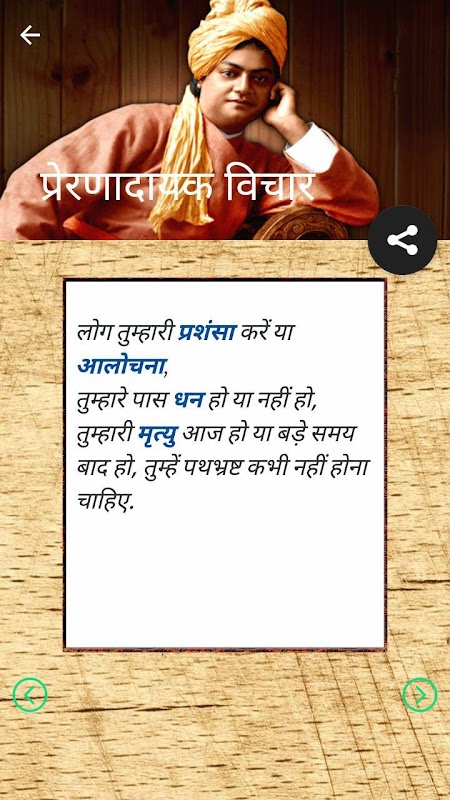 प्रेरणादायक विचार
लोग तुम्हारी प्रशंसा करें या
आलोचना,
तुम्हारे पास धन हो या नहीं हो,
तुम्हारी मृत्यु आज हो या बड़े समय
बाद हो, तुम्हें पथभ्रष्ट कभी नहीं होना
चाहिए.